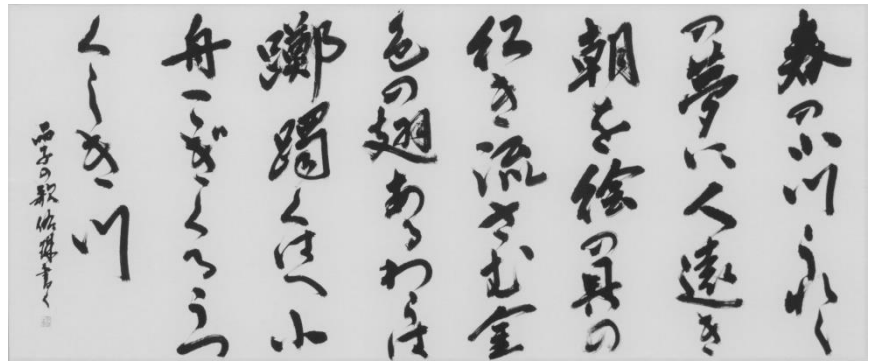 春の小川うれし
の夢に人遠き
朝を絵の具の
紅き流さむ金
色の翅あるわらは
躑躅くはへ小
舟こぎくるうつ
くしき川
晶子の歌 書く